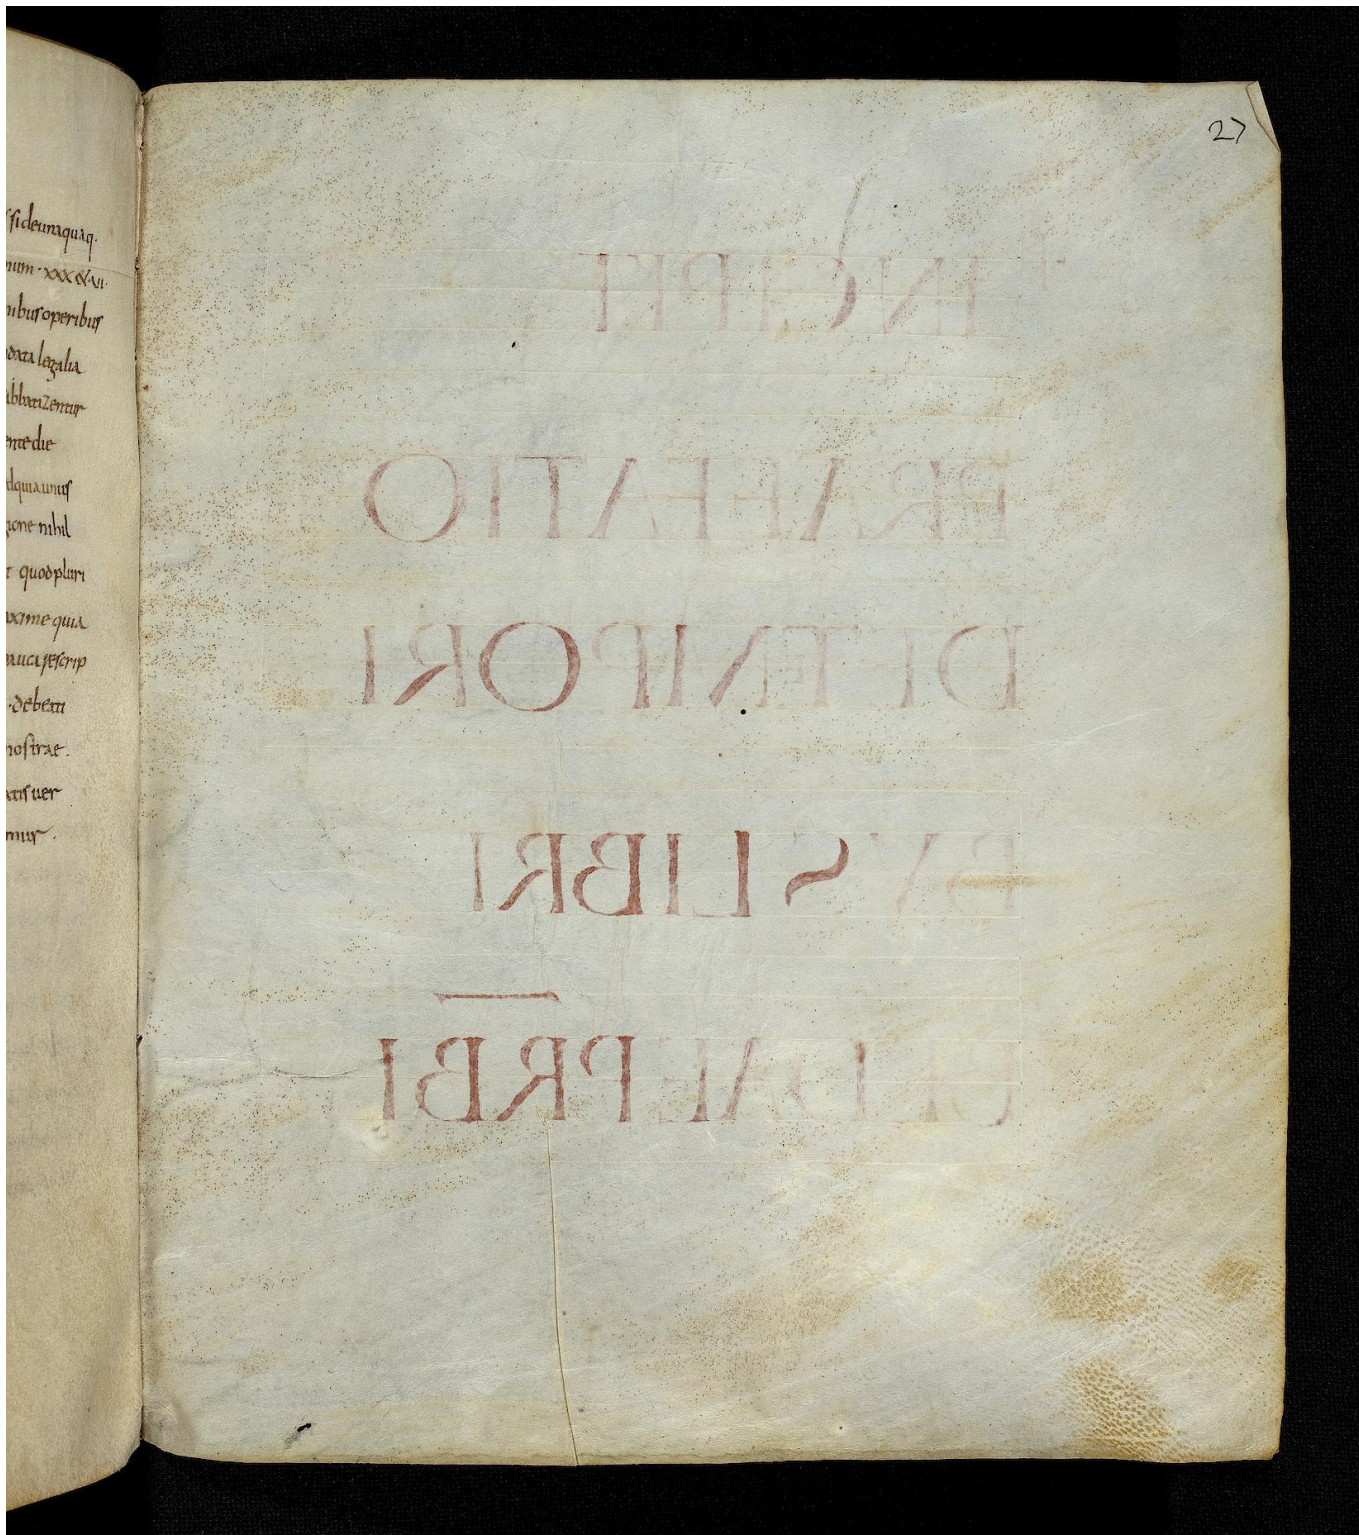 si deunaquaq.
num · XXX & VI·
nibus operibus
data legalia
abbatizentur
ente die
dquia unus
gione nihil
t quod pluri
axime quia
· debeti
nostrae.
atis uer
mus.
27
+ INCIPIT
PRAEFATIO
DE TEMPORI
BVS LIBRI
BEDAE PRBI